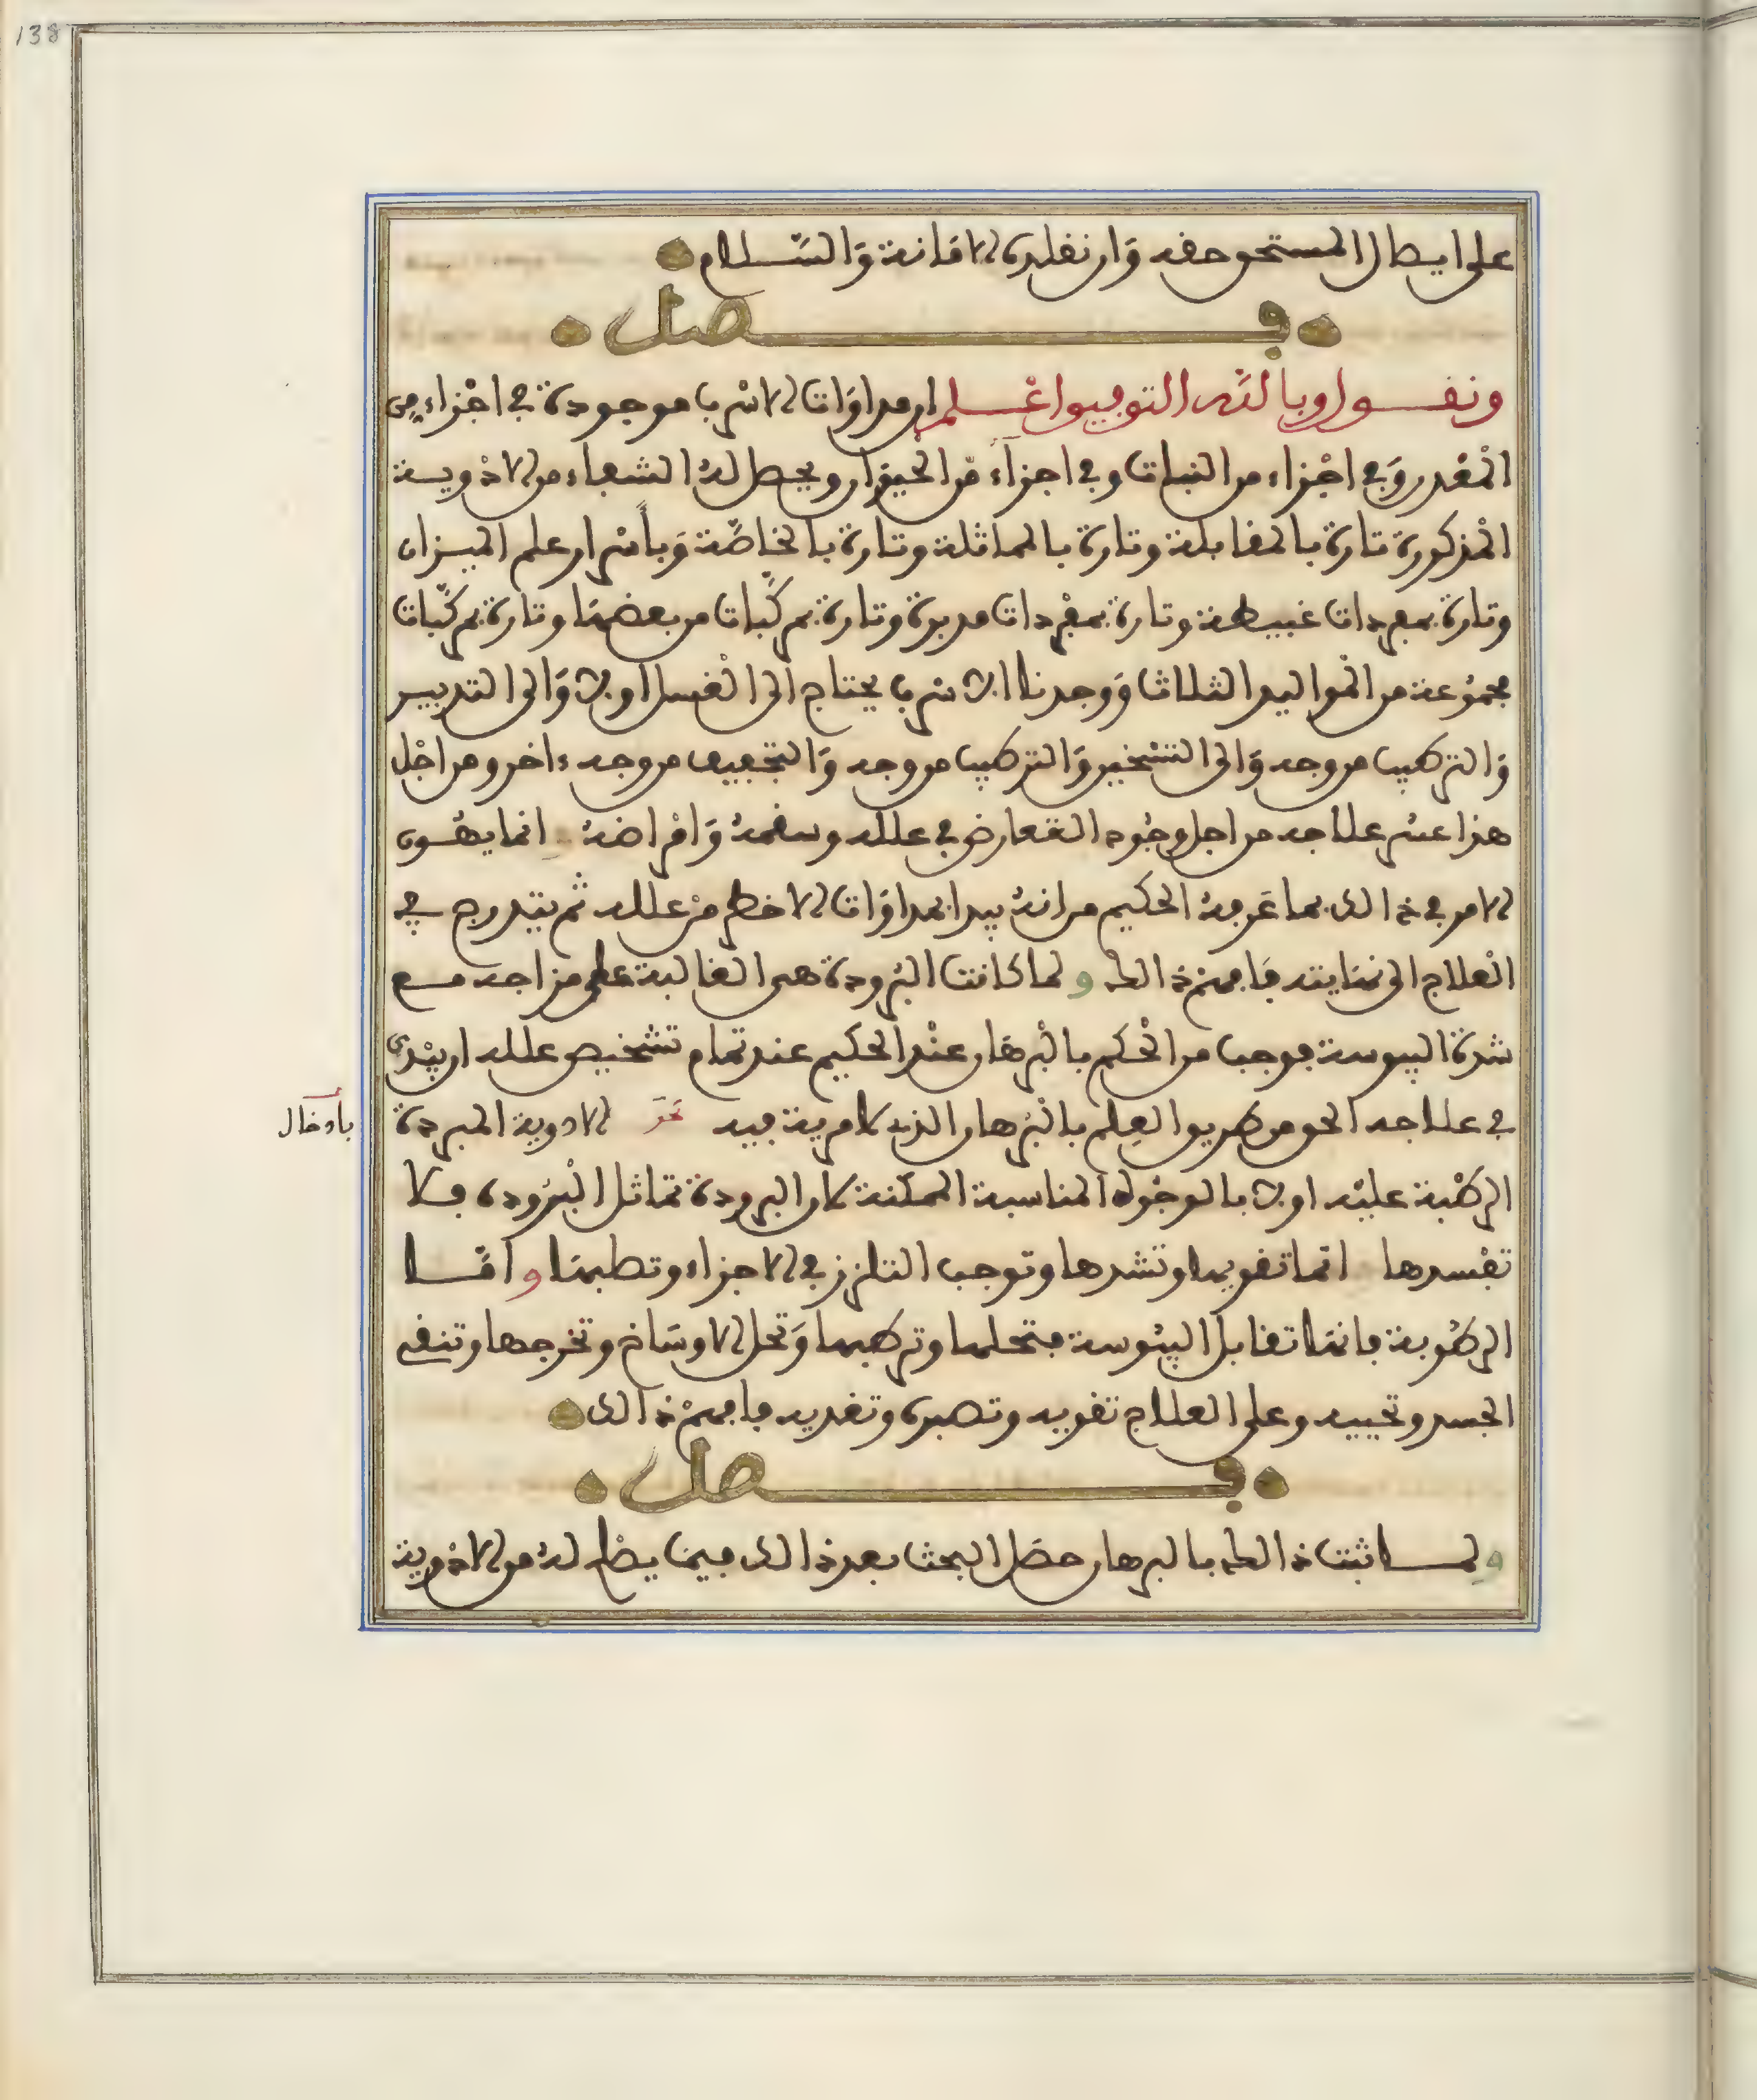 138
على ايصال المستحق حقه وان نقلده الامانة والسلام
فصل
ونقول وبالله التوفيق اعلم ان مداوات الاسرب موجودة في اجزاء من
المعدن وفي اجزاء من النبات وفي اجزاء من الحيوان ويحصل له الشفاء من الادوية
المذكورة تارة بالمقابلة وتارة بالمماثلة وتارة بالخاصة وبأسرار علم الميزان
وتارة بمفردات غبيطة وتارة بمفردات مدبرة وتارة بمركبات من بعضها وتارة بمركبات
مجموعة من المواليد الثلاث ووجدنا الاسرب يحتاج الى الغسل اولا والى التدبير
والتركيب من وجه والى التسخين والتركيب من وجه والتجفيف من وجه ءاخر ومن اجل
هذا عسر علاجه من اجل وجود التعارض في علله وسقمه وامراضه انما يهون
الامر في ذالك بما عرفه الحكيم من انه يبدا بمداوات الاخطر من علله ثم يتدرج في
العلاج الى نهايته فافهم ذالك ولما كانت البرودة هي الغالبة على مزاجه مع
شدة اليبوسة فوجب من الحكم بالبرهان عند الحكيم عند تمام تشخيص علله ان يبتدي
في علاجه الحق من طريق العلم بالبرهان الذي لا مرية فيه نحو الادوية المبردة
بأدخال
الرطبة عليه اولا بالوجوه المناسبة الممكنة لان البرودة تماثل البرودة فلا
تفسدها انما تقويها وتشدها وتوجب التلزز في الاجزاء وتطبها واما
الرطوبة فانها تقابل اليبوسة فتحلها وترطبها وتحل الاوساخ وتخرجها وتنقي
الجسد وتحييه وعلى العلاج تقويه وتصبره وتغذيه فافهم ذالك
فصل
ولما ثبت ذالك بالبرهان حصل البحث بعد ذالك فيما يصلح له من الادوية